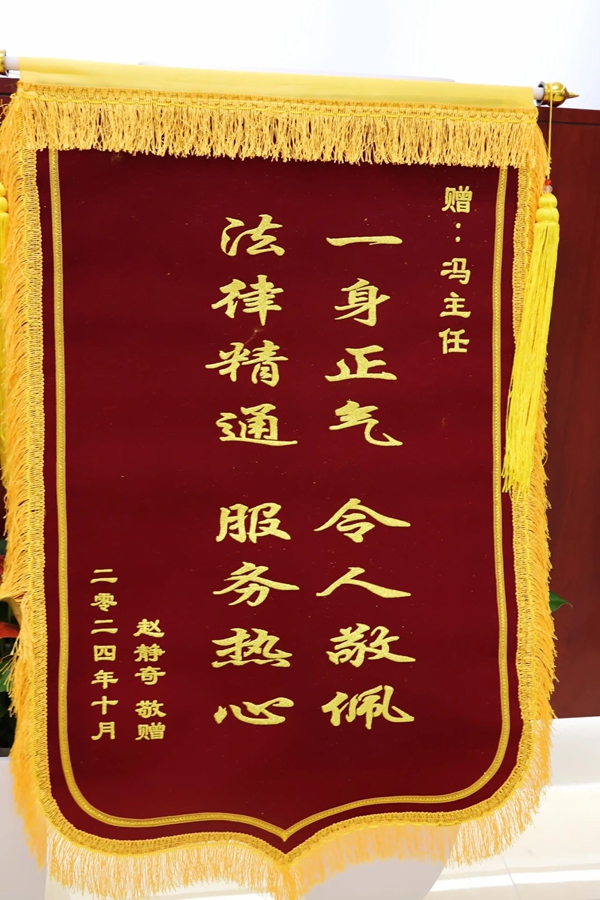 赠：冯主任
一身正气 令人敬佩
法律精通 服务热心
赵静奇 敬赠
二零二四年十月